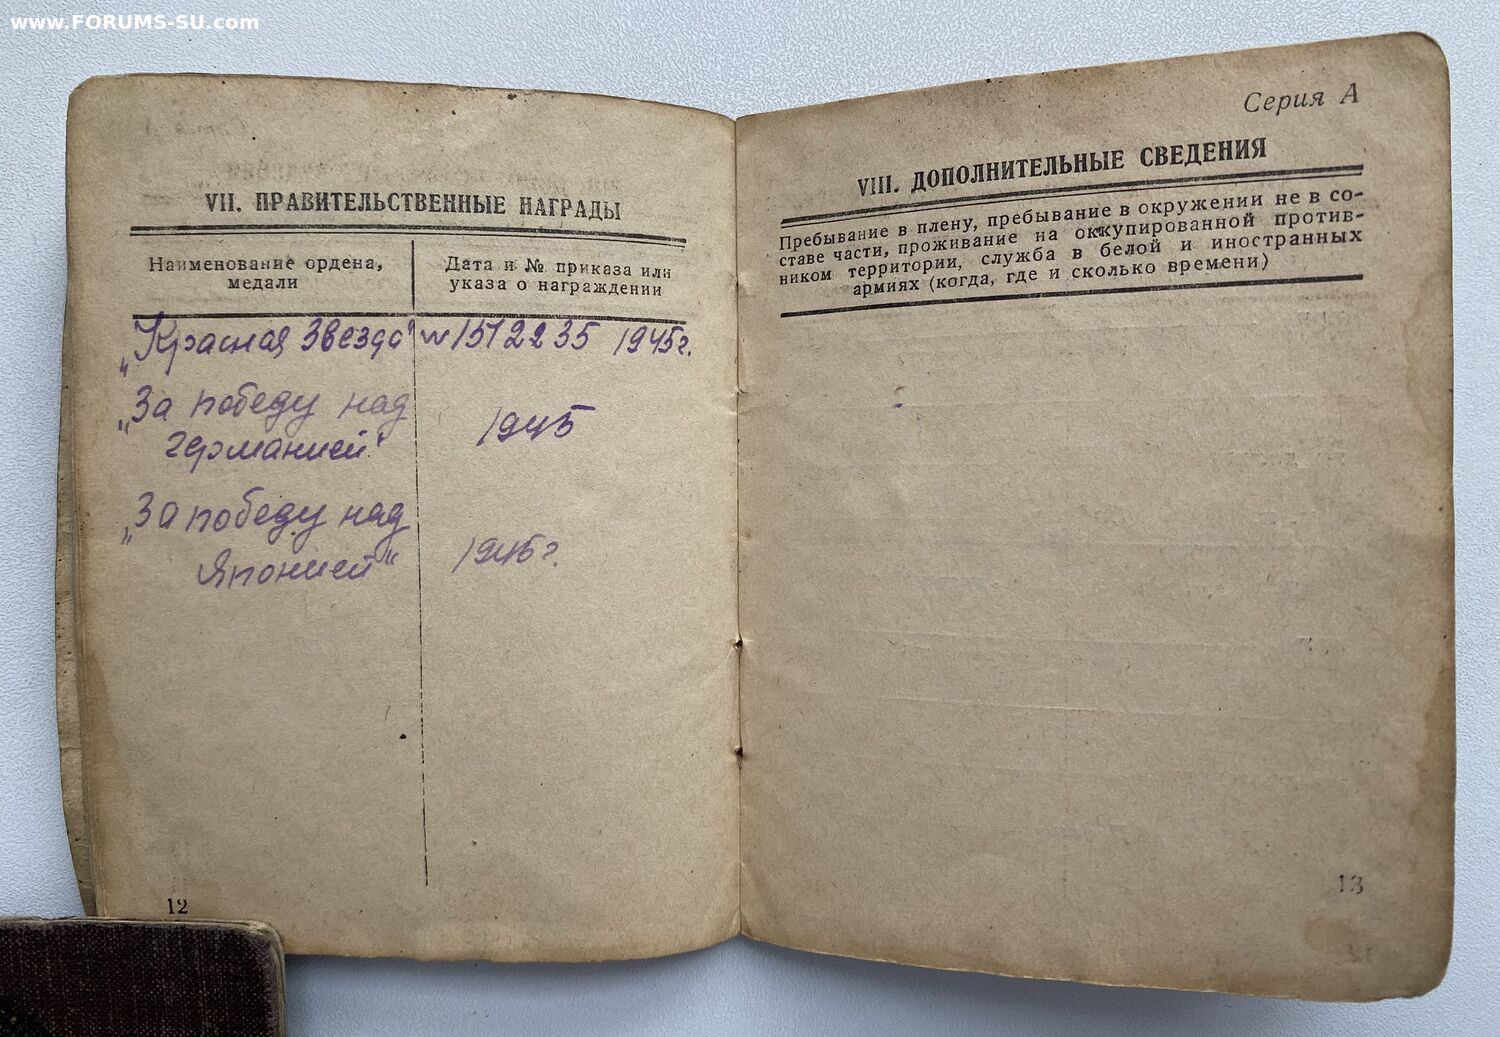 www.FORUMS-SU.com
VII. ПРАВИТЕЛЬСТВЕННЫЕ НАГРАДЫ
Наименование ордена,
медали
Дата и № приказа или
указа о награждении
„Красная Звезда" № 1512235 1945г.
„За победу над
германией" 1945
„За победу над
Японией" 1945г.
12
Серия А
VIII. ДОПОЛНИТЕЛЬНЫЕ СВЕДЕНИЯ
Пребывание в плену, пребывание в окружении не в со-
ставе части, проживание на оккупированной против-
ником территории, служба в белой и иностранных
армиях (когда, где и сколько времени)
13